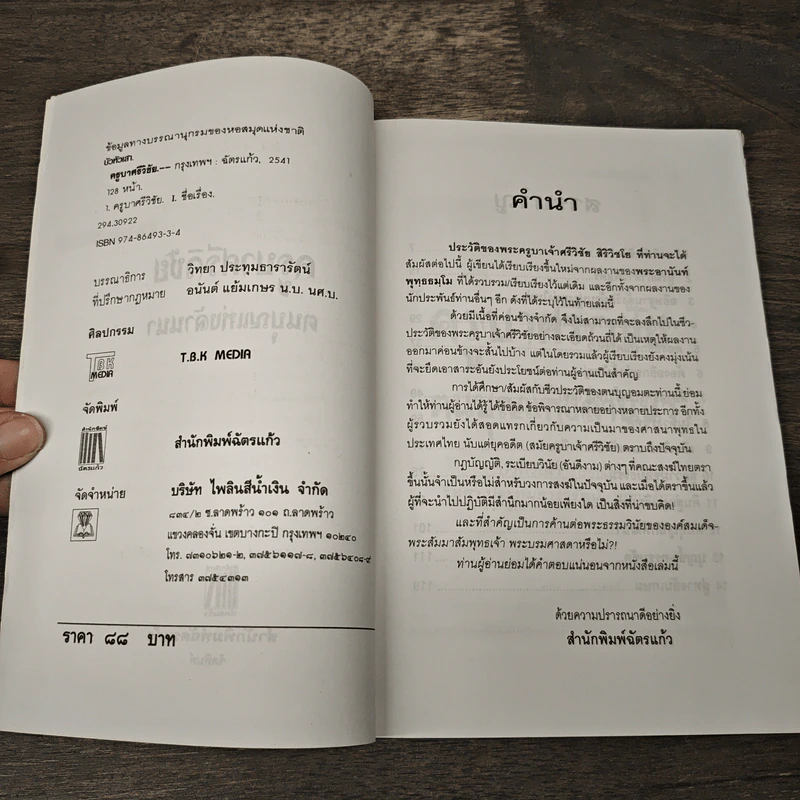 ข้อมูลทางบรรณานุกรมของหอสมุดแห่งชาติ
บัวหัวเสา.
ครูบาศรีวิชัย.-- กรุงเทพฯ : ฉัตรแก้ว, 2541
128 หน้า.
1. ครูบาศรีวิชัย. I. ชื่อเรื่อง.
294.30922
ISBN 974-86493-3-4
บรรณาธิการ วิทยา ประทุมธารารัตน์
ที่ปรึกษากฎหมาย อนันต์ แย้มเกษร น.บ. นศ.บ.
ศิลปกรรม
T.B.K MEDIA
T.B.K MEDIA
จัดพิมพ์
สำนักพิมพ์
ฉัตรแก้ว
สำนักพิมพ์ฉัตรแก้ว
จัดจำหน่าย บริษัท ไพลินสีน้ำเงิน จำกัด
๘๓๔/๒ ซ.ลาดพร้าว ๑๐๑ ถ.ลาดพร้าว
แขวงคลองจั่น เขตบางกะปิ กรุงเทพฯ ๑๐๒๔๐
โทร. ๗๓๑๐๖๒๑-๒, ๓๗๕๖๑๑๗-๘, ๓๗๕๖๔๐๘-๙
โทรสาร ๓๗๕๔๓๑๓
ราคา ๘๘ บาท
คำนำ
ประวัติของพระครูบาเจ้าศรีวิชัย สิริวิชโย ที่ท่านจะได้
สัมผัสต่อไปนี้ ผู้เขียนได้เรียบเรียงขึ้นใหม่จากผลงานของพระอานันท์
พุทธธมฺโม ที่ได้รวบรวม/เรียบเรียงไว้แต่เดิม และอีกทั้งจากผลงานของ
นักประพันธ์ท่านอื่นๆ อีก ดังที่ได้ระบุไว้ในท้ายเล่มนี้
ด้วยมีเนื้อที่ค่อนข้างจำกัด จึงไม่สามารถที่จะลงลึกไปในชีว-
ประวัติของพระครูบาเจ้าศรีวิชัยอย่างละเอียดถ้วนถี่ได้ เป็นเหตุให้ผลงาน
ออกมาค่อนข้างจะสั้นไปบ้าง แต่ในโดยรวมแล้วผู้เรียบเรียงยังคงมุ่งเน้น
ที่จะยึดเอาสาระอันยังประโยชน์ต่อท่านผู้อ่านเป็นสำคัญ
การได้ศึกษา/สัมผัสกับชีวประวัติของตนบุญอมตะท่านนี้ ย่อม
ทำให้ท่านผู้อ่านได้รู้ ได้ข้อคิด ข้อพิจารณาหลายอย่างหลายประการ อีกทั้ง
ผู้รวบรวมยังได้สอดแทรกเกี่ยวกับความเป็นมาของศาสนาพุทธใน
ประเทศไทย นับแต่ยุคอดีต (สมัยครูบาเจ้าศรีวิชัย) ตราบถึงปัจจุบัน
กฎบัญญัติ, ระเบียบวินัย (อันดีงาม) ต่างๆ ที่คณะสงฆ์ไทยตรา
ขึ้นนั้นจำเป็นหรือไม่สำหรับวงการสงฆ์ในปัจจุบัน และเมื่อได้ตราขึ้นแล้ว
ผู้ที่จะนำไปปฏิบัติมีสำนึกมากน้อยเพียงใด เป็นสิ่งที่น่าขบคิด!
และที่สำคัญเป็นการค้านต่อพระธรรมวินัยขององค์สมเด็จ-
พระสัมมาสัมพุทธเจ้า พระบรมศาสดาหรือไม่?!
ท่านผู้อ่านย่อมได้คำตอบแน่นอนจากหนังสือเล่มนี้
ด้วยความปรารถนาดีอย่างยิ่ง
สำนักพิมพ์ฉัตรแก้ว